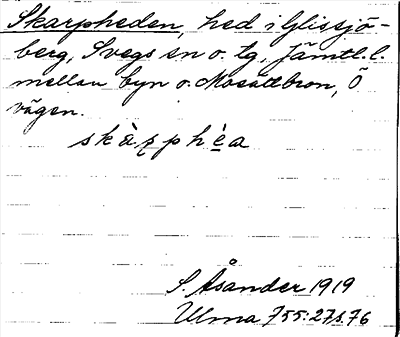 Skarpheden, hed i Glissjö-
berg, Svegs sn o. tg, Jämtl. l.
mellan byn o. Mosättbron, Ö
vägen.
skàr̥phè̱a
S. Åsander 1919
Ulma 755:27 s. 76